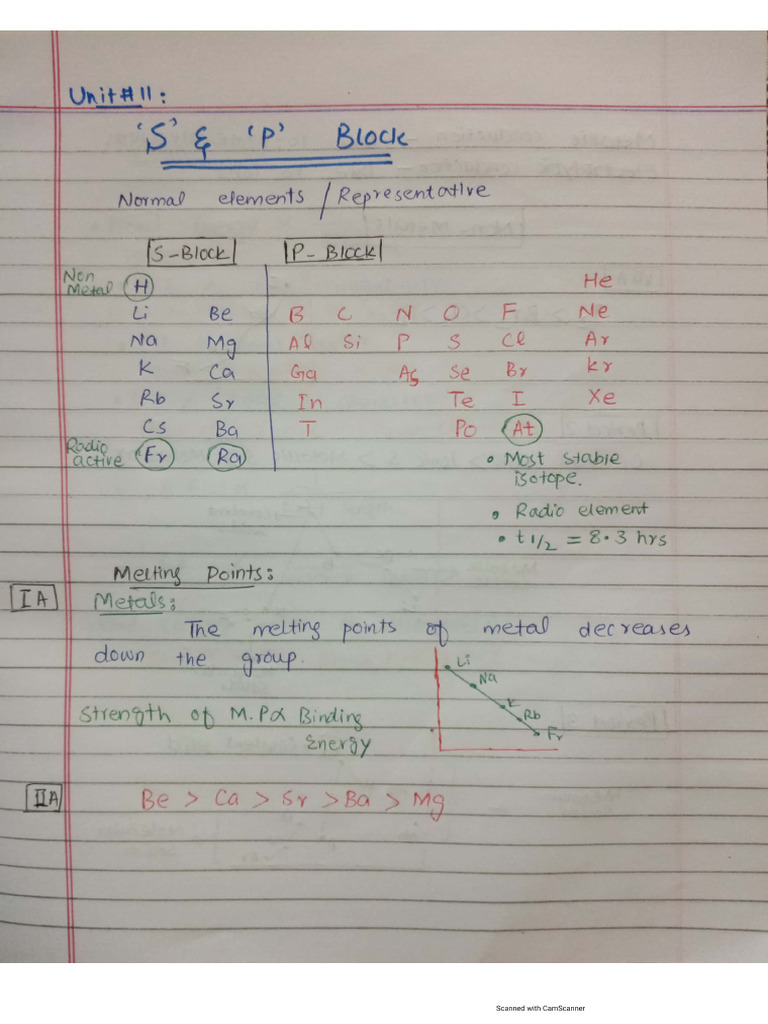 Unit#11:
'S' & 'P' Block
Normal elements / Representative
S-Block P-Block
Non
Metal H He
Li Be B C N O F Ne
Na Mg Al Si P S Cl Ar
K Ca Ga As Se Br Kr
Rb Sr In Te I Xe
Cs Ba T Po At
Radio
active Fr Ra
• Most stable
isotope.
• Radio element
• t1/2 = 8.3 hrs
Melting Points:
IA Metals:
The melting points of metal decreases
down the group.
Li
Na
K
Rb
Fr
Strength of M.P α Binding
Energy
IIA Be > Ca > Sr > Ba > Mg
Scanned with CamScanner